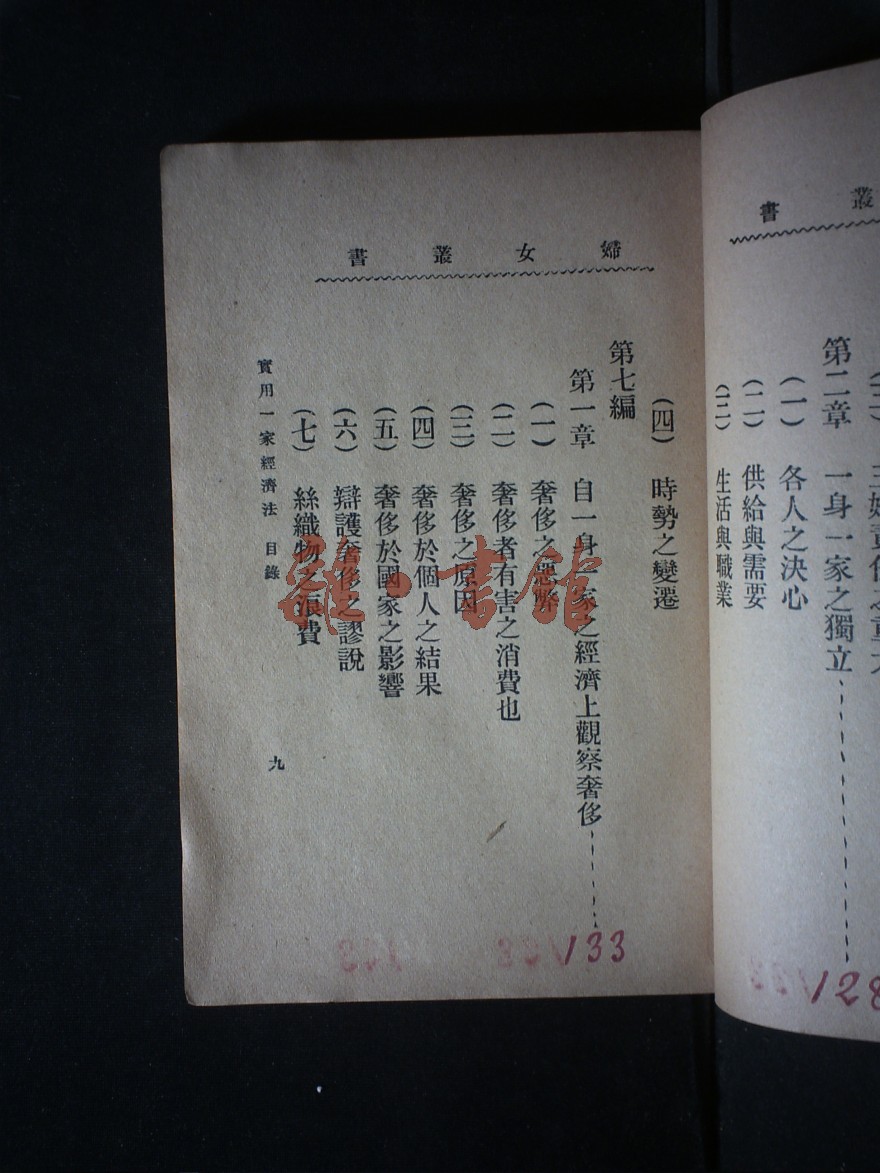 叢書
第二章 一身一家之獨立 128
(一) 各人之決心
(二) 供給與需要
(三) 生活與職業
婦女叢書
(四) 時勢之變遷
第七編
第一章 自一身一家之經濟上觀察奢侈 133
(一) 奢侈之惡弊
(二) 奢侈者有害之消費也
(三) 奢侈之原因
(四) 奢侈於個人之結果
(五) 奢侈於國家之影響
(六) 辯護奢侈之謬說
(七) 絲織物之浪費
實用一家經濟法 目錄
九
雜·書館